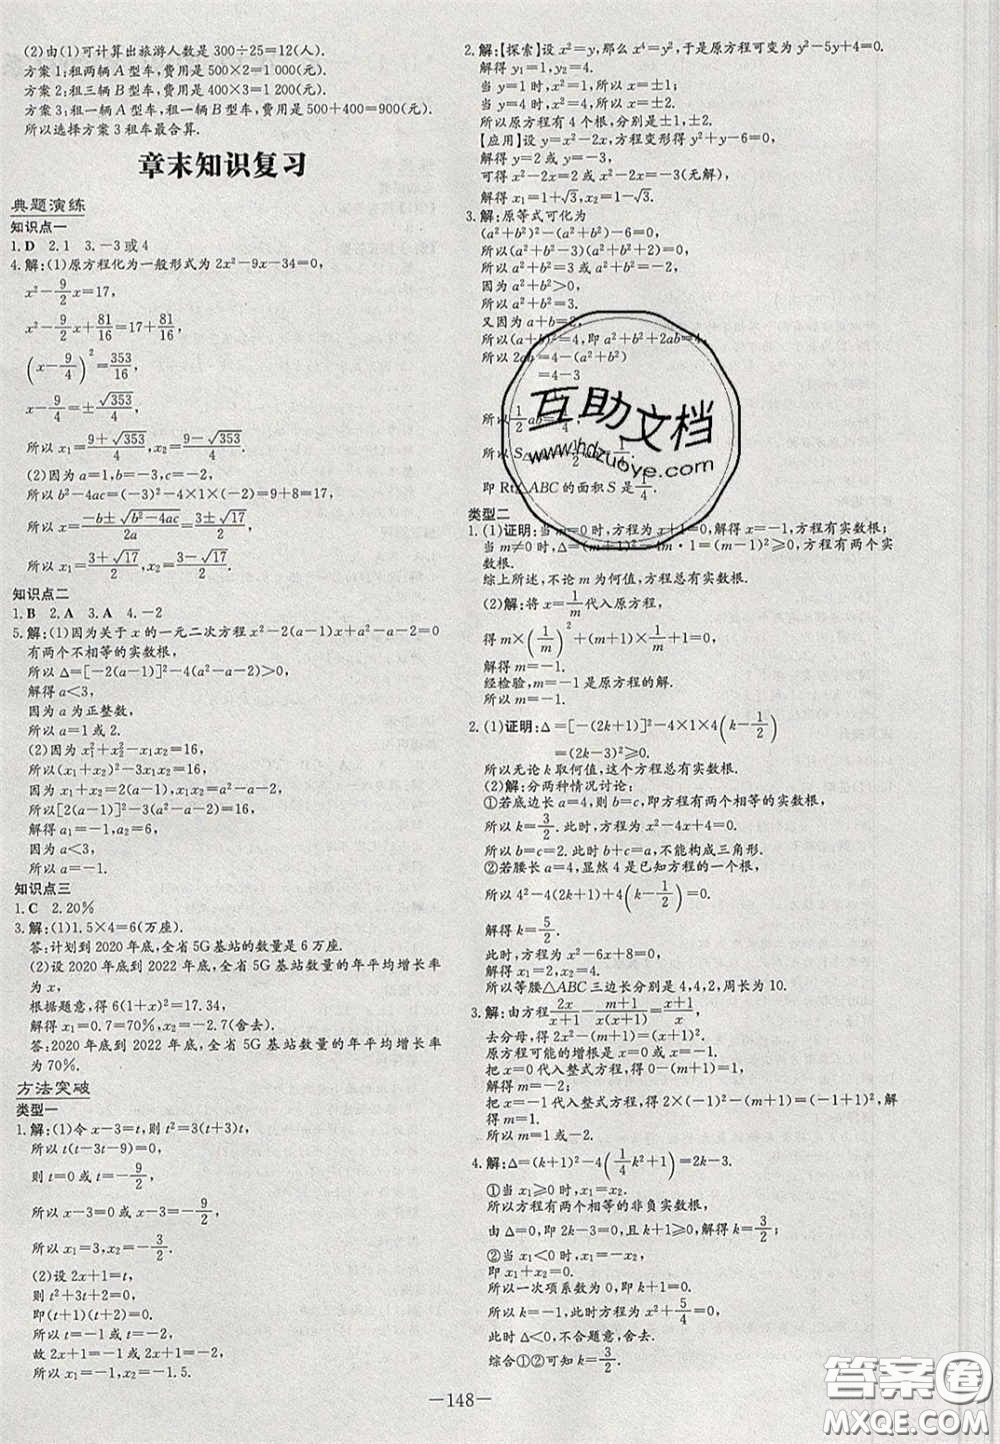 (2)由(1)可计算出旅游人数是300÷25=12(人).
方案1:租两辆A型车,费用是500×2=1 000(元).
方案2:租三辆B型车,费用是400×3=1 200(元).
方案3:租一辆A型车,租一辆B型车,费用是500+400=900(元).
所以选择方案3租车最合算.
章末知识复习
典题演练
知识点一
1.D 2.1 3.-3或4
4.解:(1)原方程化为一般形式为2x²-9x-34=0,
x²-9/2x=17,
x²-9/2x+81/16=17+81/16,
(x-9/4)²=353/16,
x-9/4=±√353/4,
所以x₁=(9+√353)/4,x₂=(9-√353)/4.
(2)因为a=1,b=-3,c=-2,
所以b²-4ac=(-3)²-4×1×(-2)=9+8=17,
所以x=(-b±√(b²-4ac))/2a=(3±√17)/2,
所以x₁=(3+√17)/2,x₂=(3-√17)/2.
知识点二
1.B 2.A 3.A 4.-2
5.解:(1)因为关于x的一元二次方程x²-2(a-1)x+a²-a-2=0
有两个不相等的实数根,
所以Δ=[-2(a-1)]²-4(a²-a-2)>0,
解得a<3,
因为a为正整数,
所以a=1或2.
(2)因为x₁²+x₂²-x₁x₂=16,
所以(x₁+x₂)²-3x₁x₂=16,
所以[2(a-1)]²-3(a²-a-2)=16,
解得a₁=-1,a₂=6,
因为a<3,
所以a=-1.
知识点三
1.C 2.20%
3.解:(1)1.5×4=6(万座).
答:计划到2020年底,全省5G基站的数量是6万座.
(2)设2020年底到2022年底,全省5G基站数量的年平均增长率
为x,
根据题意,得6(1+x)²=17.34,
解得x₁=0.7=70%,x₂=-2.7(舍去).
答:2020年底到2022年底,全省5G基站数量的年平均增长率
为70%.
方法突破
类型一
1.解:(1)令x-3=t,则t²=3(t+3)t,
所以t(t-3t-9)=0,
则t=0或t=-9/2,
所以x-3=0或x-3=-9/2,
所以x₁=3,x₂=-3/2.
(2)设2x+1=t,
则t²+3t+2=0.
即(t+1)(t+2)=0.
所以t=-1或t=-2,
故2x+1=-1或2x+1=-2,
解得x₁=-1或x₂=-1.5.
2.解:【探索】设x²=y,那么x⁴=y²,于是原方程可变为y²-5y+4=0.
解得y₁=1,y₂=4.
当y=1时,x²=1,所以x=±1,
当y=4时,x²=4,所以x=±2.
所以原方程有4个根,分别是±1,±2.
【应用】设y=x²-2x,方程变形得y²+y-6=0,
解得y=2或y=-3,
可得x²-2x=2或x²-2x=-3(无解),
解得x₁=1+√3,x₂=1-√3.
3.解:原等式可化为
(a²+b²)²-(a²+b²)-6=0,
所以(a²+b²-3)(a²+b²+2)=0,
所以a²+b²=3或a²+b²=-2,
因为a²+b²>0,
所以a²+b²=3.
又因为a+b=2,
所以(a+b)²=4,即a²+b²+2ab=4,
所以2ab=4-(a²+b²)
=4-3
所以1/2ab=
所以S△
即Rt△ABC的面积S是1/4.
类型二
1.(1)证明:当m=0时,方程为x+1=0,解得x=-1,方程有实数根;
当m≠0时,Δ=(m+1)²-4m·1=(m-1)²≥0,方程有两个实
数根.
综上所述,不论m为何值,方程总有实数根.
(2)解:将x=1/m代入原方程,
得m×(1/m)²+(m+1)×1/m+1=0,
解得m=-1.
经检验,m=-1是原方程的解.
所以m=-1.
2.(1)证明:Δ=[-(2k+1)]²-4×1×4(k-1/2)
=(2k-3)²≥0.
所以无论k取何值,这个方程总有实数根.
(2)解:分两种情况讨论:
①若底边长a=4,则b=c,即方程有两个相等的实数根,
所以k=3/2.此时,方程为x²-4x+4=0.
所以b=c=2.此时,b+c=a,不能构成三角形.
②若腰长a=4,显然4是已知方程的一个根,
所以4²-4(2k+1)+4(k-1/2)=0,
解得k=5/2.
此时,方程为x²-6x+8=0,
解得x₁=2,x₂=4.
所以等腰△ABC三边长分别是4,4,2,周长为10.
3.解:由方程2x/(x+1)-(m+1)/(x(x+1))=(x+1)/x,
去分母,得2x²-(m+1)=(x+1)².
原方程可能的增根是x=0,x=-1.
把x=0代入整式方程,得0-(m+1)=1,
解得m=-2;
把x=-1代入整式方程,得2×(-1)²-(m+1)=(-1+1)²,
解得m=1.
所以m=1或-2.
4.解:Δ=(k+1)²-4(1/4k²+1)=2k-3.
①当x₁≥0时,x₁=x₂,
所以方程有两个相等的非负实数根,
由Δ=0,即2k-3=0,且k+1≥0,解得k=3/2;
②当x₁<0时,x₂=-x₁,
即x₁+x₂=0,
所以一次项系数为0,即k+1=0,
所以k=-1,此时方程为x²+5/4=0,
此时Δ<0,不合题意,舍去.
综合①②可知k=3/2.
-148-
互助文档
www.hdzuoye.com
答案圈
MXQE.COM